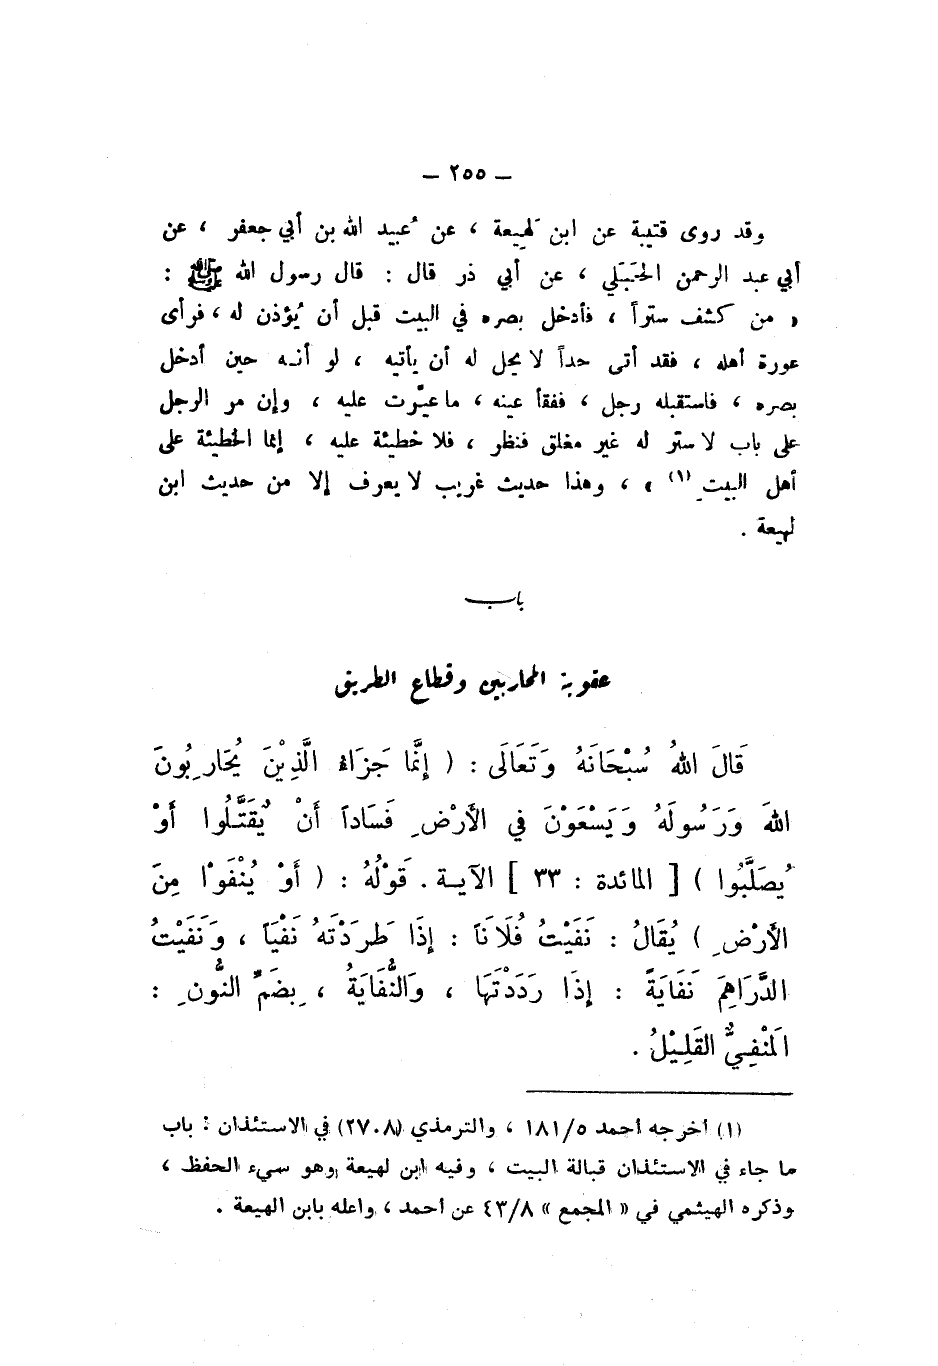 — ٢٥٥ —
وقد روى قتيبة عن ابن لَهيعة ، عن عُبيد الله بن أبي جعفر ، عن
أبي عبد الرحمن الحَبَلي ، عن أبي ذر قال : قال رسول الله ﷺ :
« من كشف ستراً ، فأدخل بصره في البيت قبل أن يُؤذن له ، فرأى
عورة أهله ، فقد أتى حداً لا يحل له أن يأتيه ، لو أنه حين أدخل
بصره ، فاستقبله رجل ، ففقأ عينه ، ما عيّرت عليه ، وإن مر الرجل
على باب لا ستر له غير مغلق فنظر ، فلا خطيئة عليه ، إنما الخطيئة على
أهل البيت (١) » ، وهذا حديث غريب لا يعرف إلا من حديث ابن
لهيعة .
باب
عقوبة المحاربين وقطاع الطريق
قَالَ اللهُ سُبْحَانَهُ وَتَعَالَى : ( إِنَّمَا جَزَاءُ الَّذِيْنَ يُحَارِبُونَ
اللهَ وَرَسُولَهُ وَيَسْعَوْنَ فِي الأَرْضِ فَسَاداً أَنْ يُقَتَّلُوا أَوْ
يُصَلَّبُوا ) [ المائدة : ٣٣ ] الآية . قَوْلُهُ : ( أَوْ يُنْفَوْا مِنَ
الأَرْضِ ) يُقَالُ : نَفَيْتُ فُلَاناً : إِذَا طَرَدْتَهُ نَفْيَاً ، وَنَفَيْتُ
الدَّرَاهِمَ نَفَايَةً : إِذَا رَدَدْتَهَا ، وَالنُّفَايَةُ ، بِضَمِّ النُّونِ :
المَنْفِيُّ القَلِيْلُ .
(١) أخرجه أحمد ١٨١/٥ ، والترمذي (٢٧٠٨) في الاستئذان : باب
ما جاء في الاستئذان قبالة البيت ، وفيه ابن لهيعة وهو سيء الحفظ ،
وذكره الهيثمي في « المجمع » ٤٣/٨ عن أحمد ، وأعله بابن الهيعة .